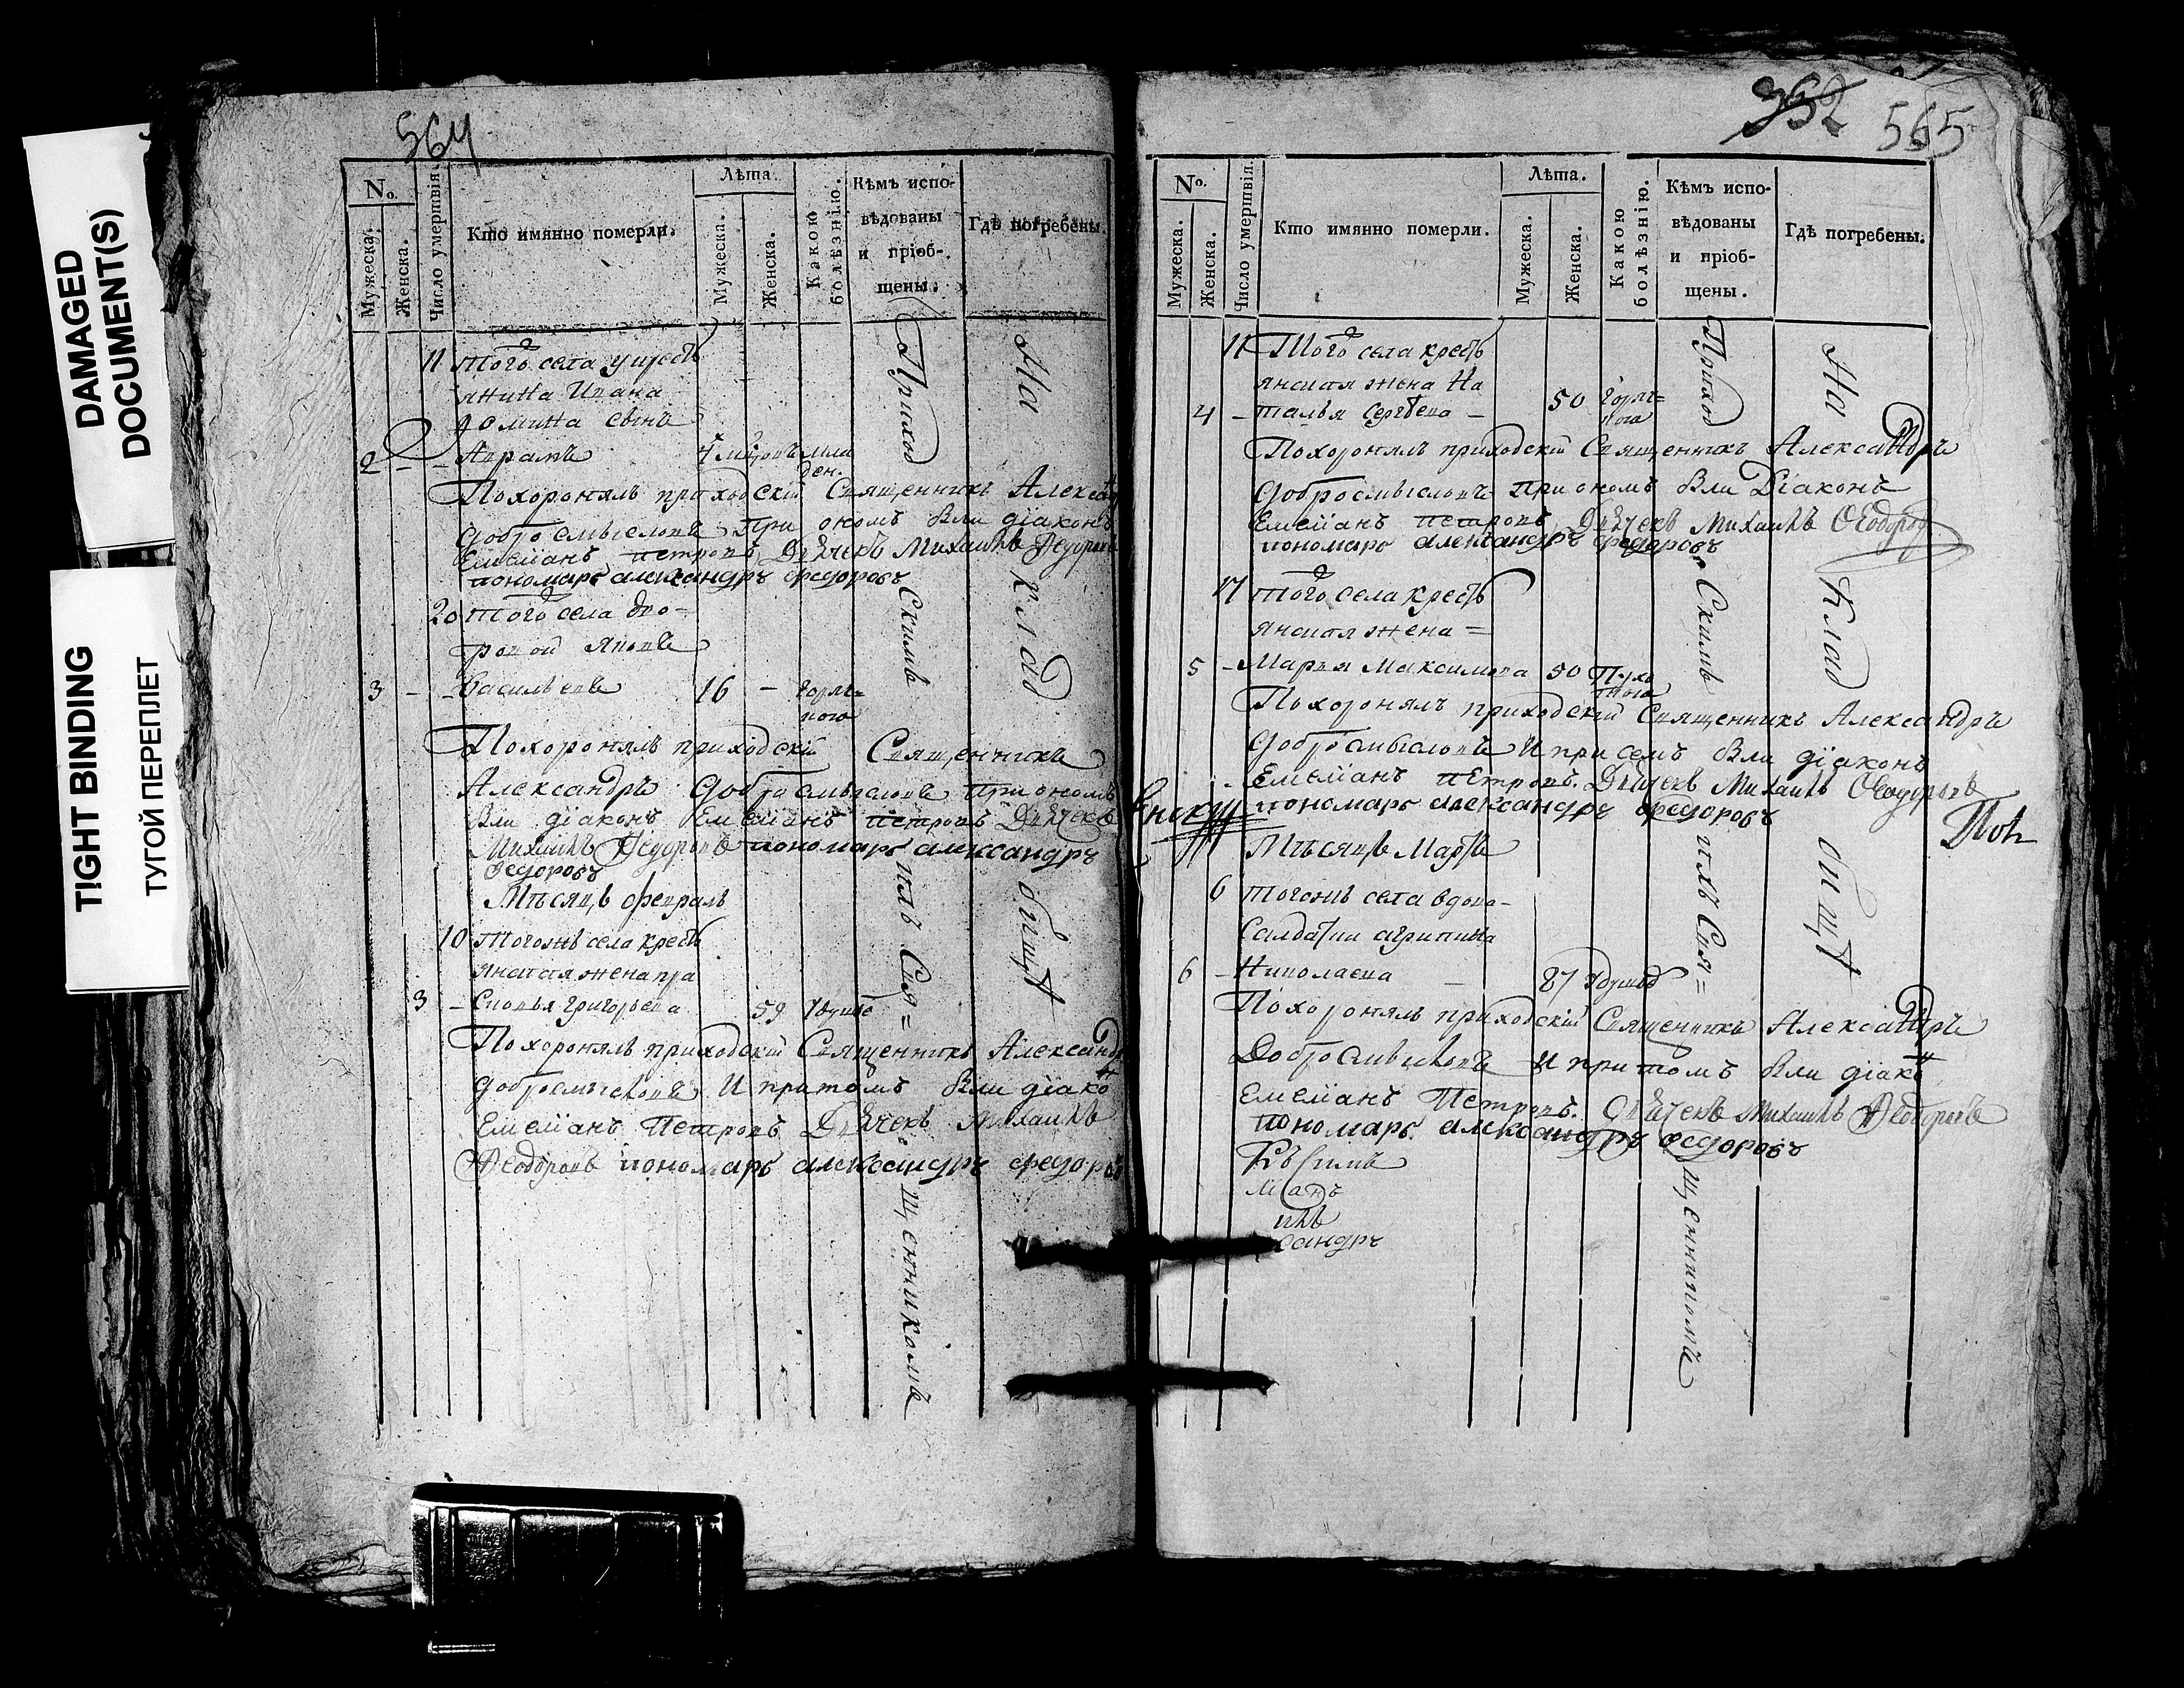 DAMAGED
DOCUMENT(S)
TIGHT BINDING
ТУГОЙ ПЕРЕПЛЕТ
564
№.
Мужеска.
Женска.
Число умертвія.
Кто имянно померли.
Лѣта.
Мужеска.
Женска.
Какою болѣзнію.
Кѣмъ испо-
вѣдованы
и пріоб-
щены.
Гдѣ погребены.
11 того села у крестъ
янина Ивана
Фомина сынъ
2 - - Аврамъ 4 мцовъ мла
ден.
Похоронялъ приходскій Священникъ Алексан
Добросмысловъ При ономъ Были діаконъ
Емеліанъ петровъ Дьячекъ Михаилъ Федоровъ
пономарь александръ федоровъ
20 того села дво-
ровой яковъ
3 - - Васильевъ 16 - горяч=
кою
Похоронялъ приходскій Священникъ
Александръ Добросмысловъ При ономъ
Были діаконъ Емеліанъ петровъ Дьячекъ
Михаилъ Федоровъ пономарь александръ
федоровъ
Мѣсяцъ февраль
10 тогожъ села крестъ
янская жена пра
3 - Сковья григорьева 59
Похоронялъ приходскій Священникъ Александ
Добросмысловъ И притомъ Были діако
Емеліанъ Петровъ Дьячекъ Михаилъ
Феодоровъ пономарь александръ федоровъ
Приход
Скимъ
Свя=
щенникомъ
На
клад
бищѣ
352 565
№.
Мужеска.
Женска.
Число умертвія.
Кто имянно померли.
Лѣта.
Мужеска.
Женска.
Какою болѣзнію.
Кѣмъ испо-
вѣдованы
и пріоб-
щены.
Гдѣ погребены.
11 Того села крестъ
янская жена На
4 - талья Сергѣева - 50 горяч=
кою
Похоронялъ приходскій Священникъ Александръ
Добросмысловъ При ономъ Были Діаконъ
Емеліанъ петровъ Дьячекъ Михаилъ Ѳеодоров
пономарь александръ федоровъ
17 того села крестъ
янская жена =
5 - Марья Максимова 50
Похоронялъ приходскій Священникъ Александръ
Добросмысловъ И при семъ Были діаконъ
Емеліанъ петровъ. Дьячекъ Михаилъ Ѳеодоровъ
пономарь александръ федоровъ
Мѣсяцъ Мартъ
6 тогожъ села вдова
Салдатка агрипина
6 - Николаева 87
Похоронялъ приходскій Священникъ Александръ
Добросмысловъ И притомъ Были діако
Емеліанъ Петровъ. Дьячекъ Михаилъ Феодоровъ
пономарь александръ федоровъ
Приход
Скимъ
Свя=
щенникомъ
На
Клад
бищѣ